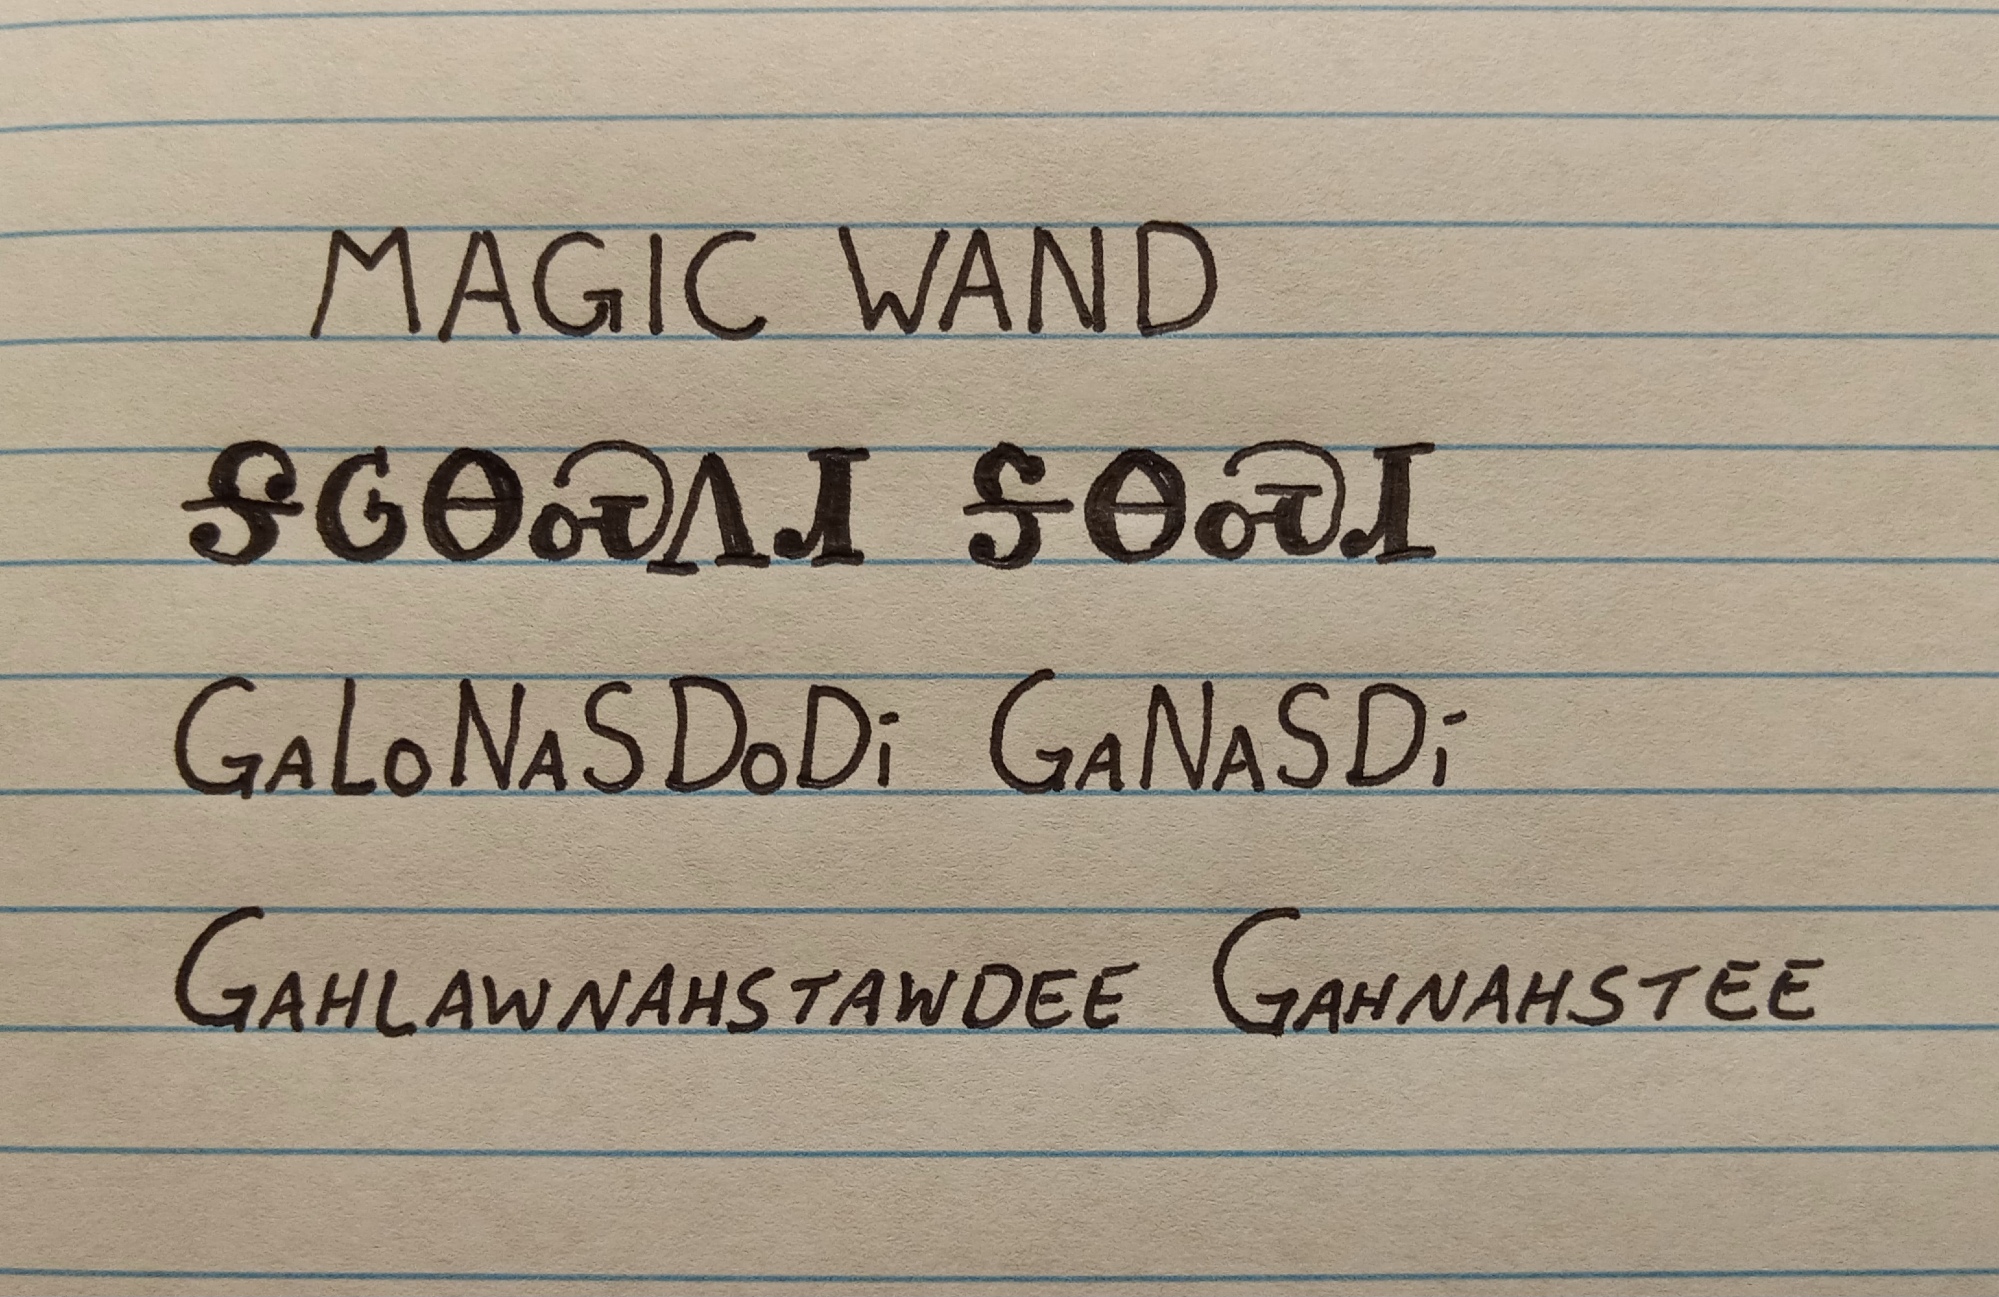 MAGIC WAND
ᎦᎶᎾᏍᏙᏗ ᎦᎾᏍᏗ
GALONASDODi GANASDi
GAHLAWNAHSTAWDEE GAHNAHSTEE